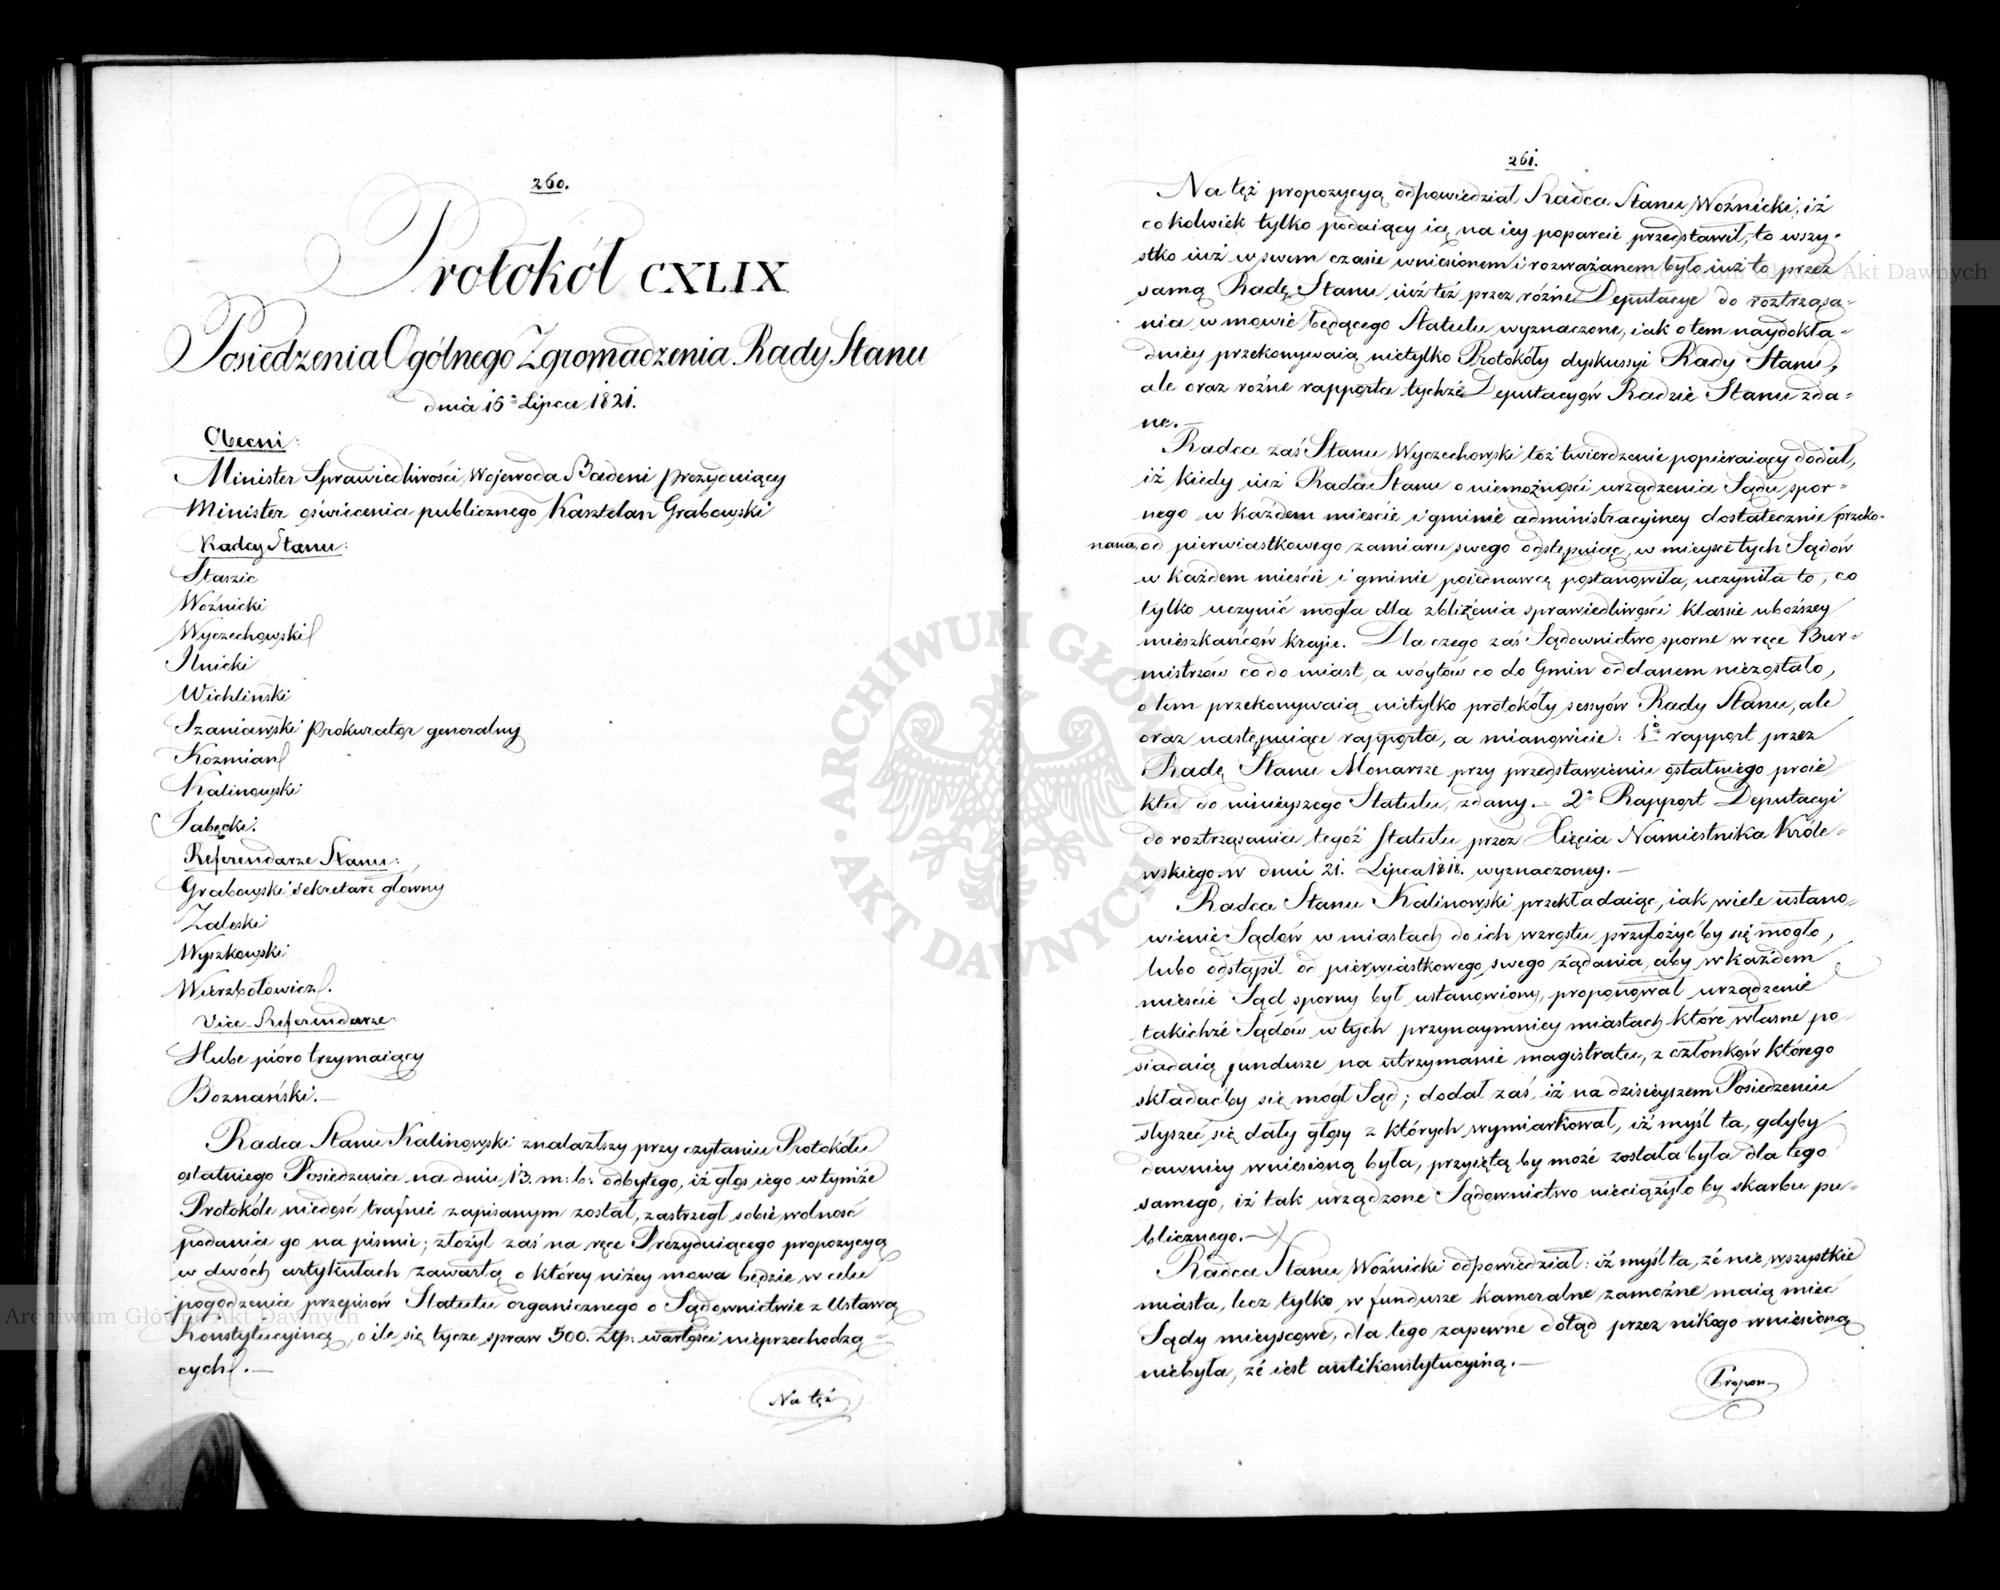 260.
Protokół CXLIX
Posiedzenia Ogólnego Zgromadzenia Rady Stanu
dnia 15º Lipca 1821.
Obecni:
Minister Sprawiedliwości, Wojewoda Badeni Prezyduiący
Minister oświecenia publicznego Kasztelan Grabowski
Radcy Stanu:
Staszic
Woźnicki
Wyczechowski
Ilnicki
Wichliński
Szaniawski Prokurator generalny
Kozmian
Kalinowski
Jabęcki.
Referendarze Stanu:
Grabowski sekretarz główny
Zaleski
Wyszkowski
Wierzbołowicz.
Vice-Referendarze
Hube pióro trzymaiący
Boznański.—
Radca Stanu Kalinowski znalazłszy przy czytaniu Protokółu
ostatniego Posiedzenia na dniu 13. m: b: odbytego, iż głos iego w tymże
Protokóle niedość trafnie zapisanym został, zastrzegł sobie wolność
podania go na piśmie; złożył zaś na ręce Prezyduiącego propozycyą
w dwóch artykułach zawartą o którey niżey mowa będzie w celu
pogodzenia przepisów Statutu organicznego o Sądownictwie z Ustawą
Konstytucyiną, o ile się tycze spraw 500. Złp: wartości nieprzechodzą-
cych.—
Na tęż
261.
Na tęż propozycyą odpowiedział Radca Stanu Woźnicki, iż
cokolwiek tylko podaiący ią na iey poparcie przedstawił, to wszy-
stko iuż w swem czasie wniesionem i rozważanem było iuż to przez
samą Radę Stanu, iuż też przez różne Deputacye do roztrząsa-
nia w mowie będącego Statutu wyznaczone, iak o tem naydokła-
dniey przekonywaią nietylko Protokóły dyskussyi Rady Stanu,
ale oraz rożne rapporta tychże Deputacyów Radzie Stanu zda-
ne.—
Radca zaś Stanu Wyczechowski toż twierdzenie popieraiący dodał,
iż kiedy iuż Rada Stanu o niemożności urządzenia Sądu spor-
nego w każdem mieście i gminie administracyiney dostatecznie przeko-
nana, od pierwiastkowego zamiaru swego odstępuiąc, w mieysce tych Sądów
w każdem mieście i gminie poiednawcę postanowiła, uczyniła to, co
tylko uczynić mogła dla zbliżenia sprawiedliwości klassie uboższey
mieszkańców kraju. Dla czego zaś Sądownictwo sporne w ręce Bur-
mistrzów co do miast, a wóytów co do Gmin oddanem niezostało,
o tem przekonywaią nietylko protokóły sessyów Rady Stanu, ale
oraz następuiące rapporta, a mianowicie: 1º rapport przez
Radę Stanu Monarsze przy przedstawieniu ostatniego proie
ktu do ninieyszego Statutu, zdany.— 2º Rapport Deputacyi
do roztrząsania tegoż Statutu przez Xięcia Namiestnika Króle-
wskiego w dniu 21. Lipca 1818. wyznaczoney.—
Radca Stanu Kalinowski przekładaiąc, iak wiele ustano-
wienie Sądów w miastach do ich wzrostu przyłożyćby się mogło,
lubo odstąpił od pierwiastkowego swego żądania, aby w każdem
mieście Sąd sporny był ustanowiony, proponował urządzenie
takichże Sądów w tych przynaymniey miastach które własne po-
siadaią fundusze na utrzymanie magistratu, z członków którego
składaćby się mógł Sąd; dodał zaś, iż na dzisieyszem Posiedzeniu
słyszeć się dały głosy z których wymiarkował, iż myśl ta, gdyby
dawniey wniesioną była, przyiętą by może została była dla tego
samego, iż tak urządzone Sądownictwo nieciążyło by skarbu pu-
blicznego.—
Radca Stanu Woźnicki odpowiedział: iż myśl ta, że nie wszystkie
miasta, lecz tylko w fundusze kameralne zamożne maią mieć
Sądy mieyscowe, dla tego zapewne dotąd przez nikogo wniesioną
niebyła, że iest antikonstytucyiną.—
Propon-
ARCHIWUM GŁÓWNE AKT DAWNYCH
Archiwum Główne Akt Dawnych
Archiwum Główne Akt Dawnych